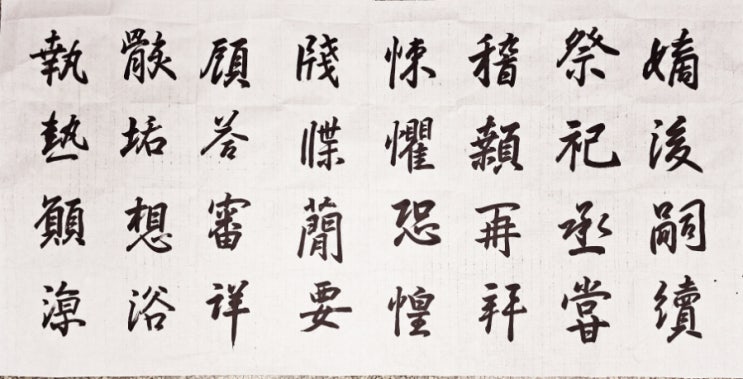 嫡後嗣續
祭祀烝嘗
稽顙再拜
悚懼恐惶
牋牒簡要
顧答審詳
骸垢想浴
執熱願涼